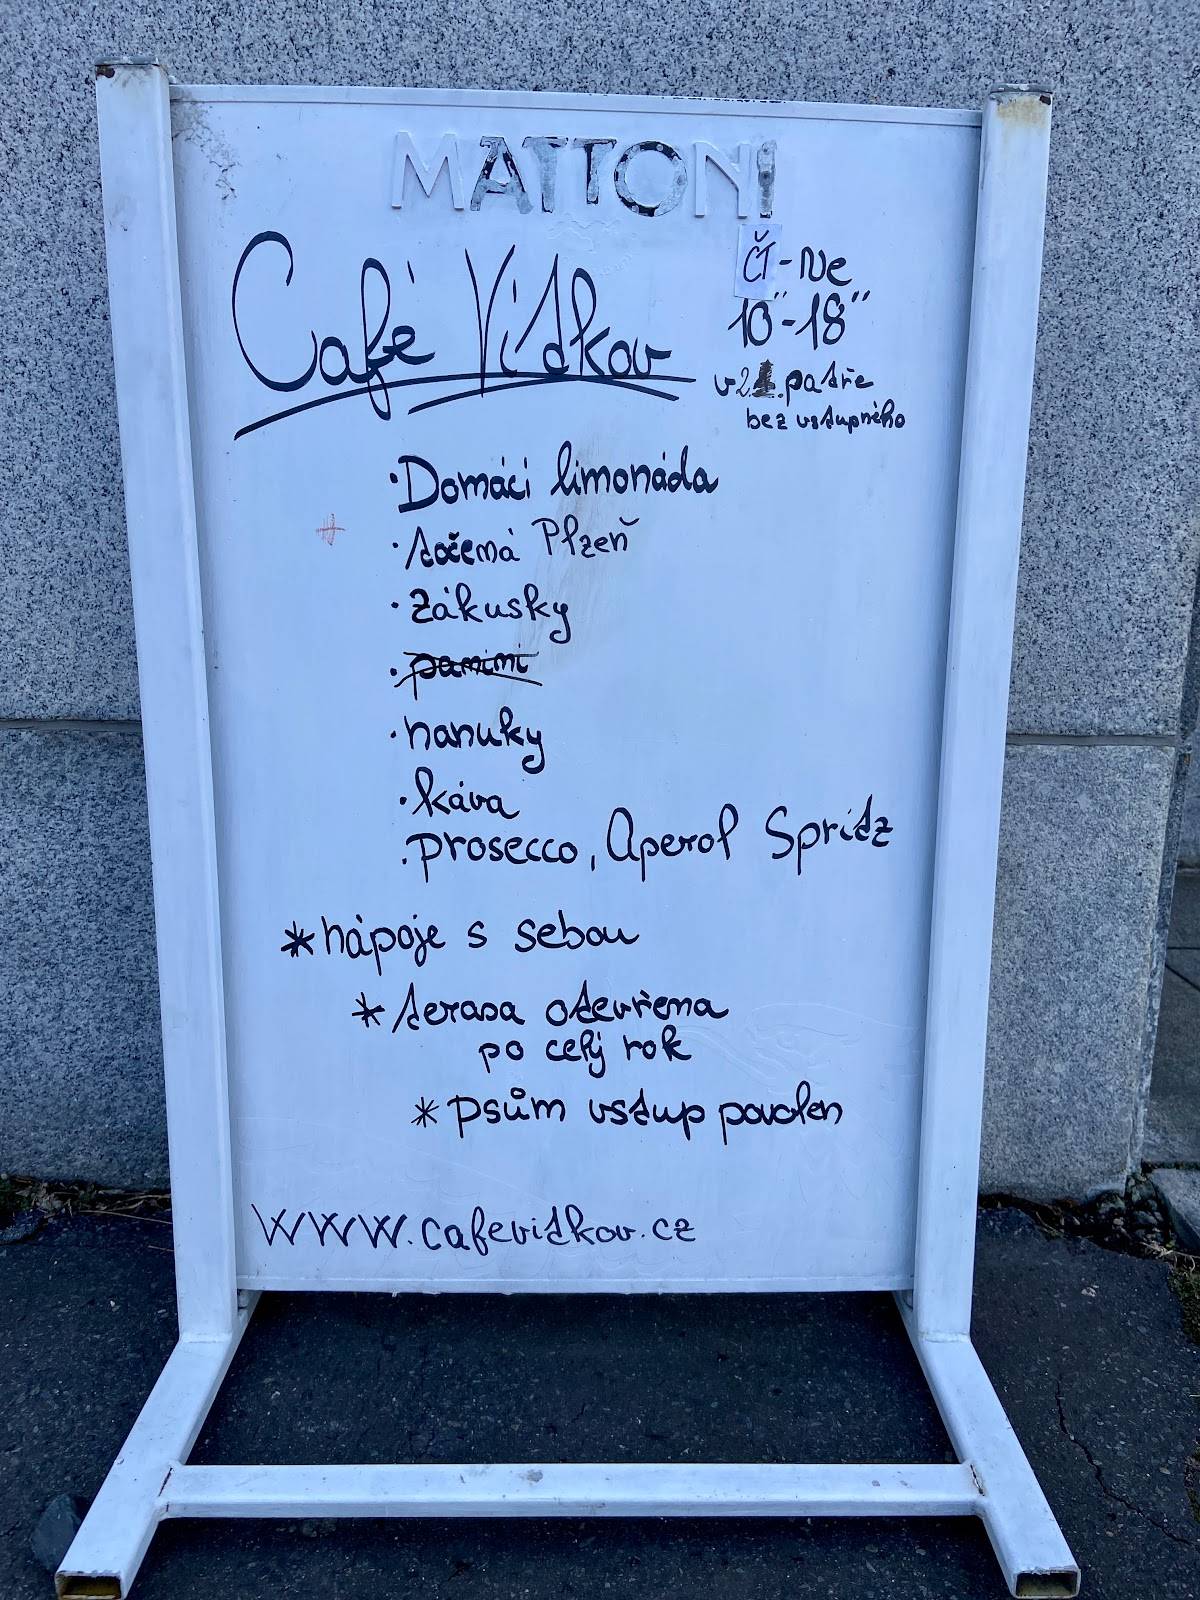 MATTONI
Café Vítkov
ČT-Ne
10°°-18°°
v 2. patře
bez vstupného
·Domácí limonáda
·točená Plzeň
·zákusky
·panini
·nanuky
·káva
·prosecco, Aperol Spritz
*nápoje s sebou
*terasa otevřena
po celý rok
*psům vstup povolen
www.cafevitkov.cz